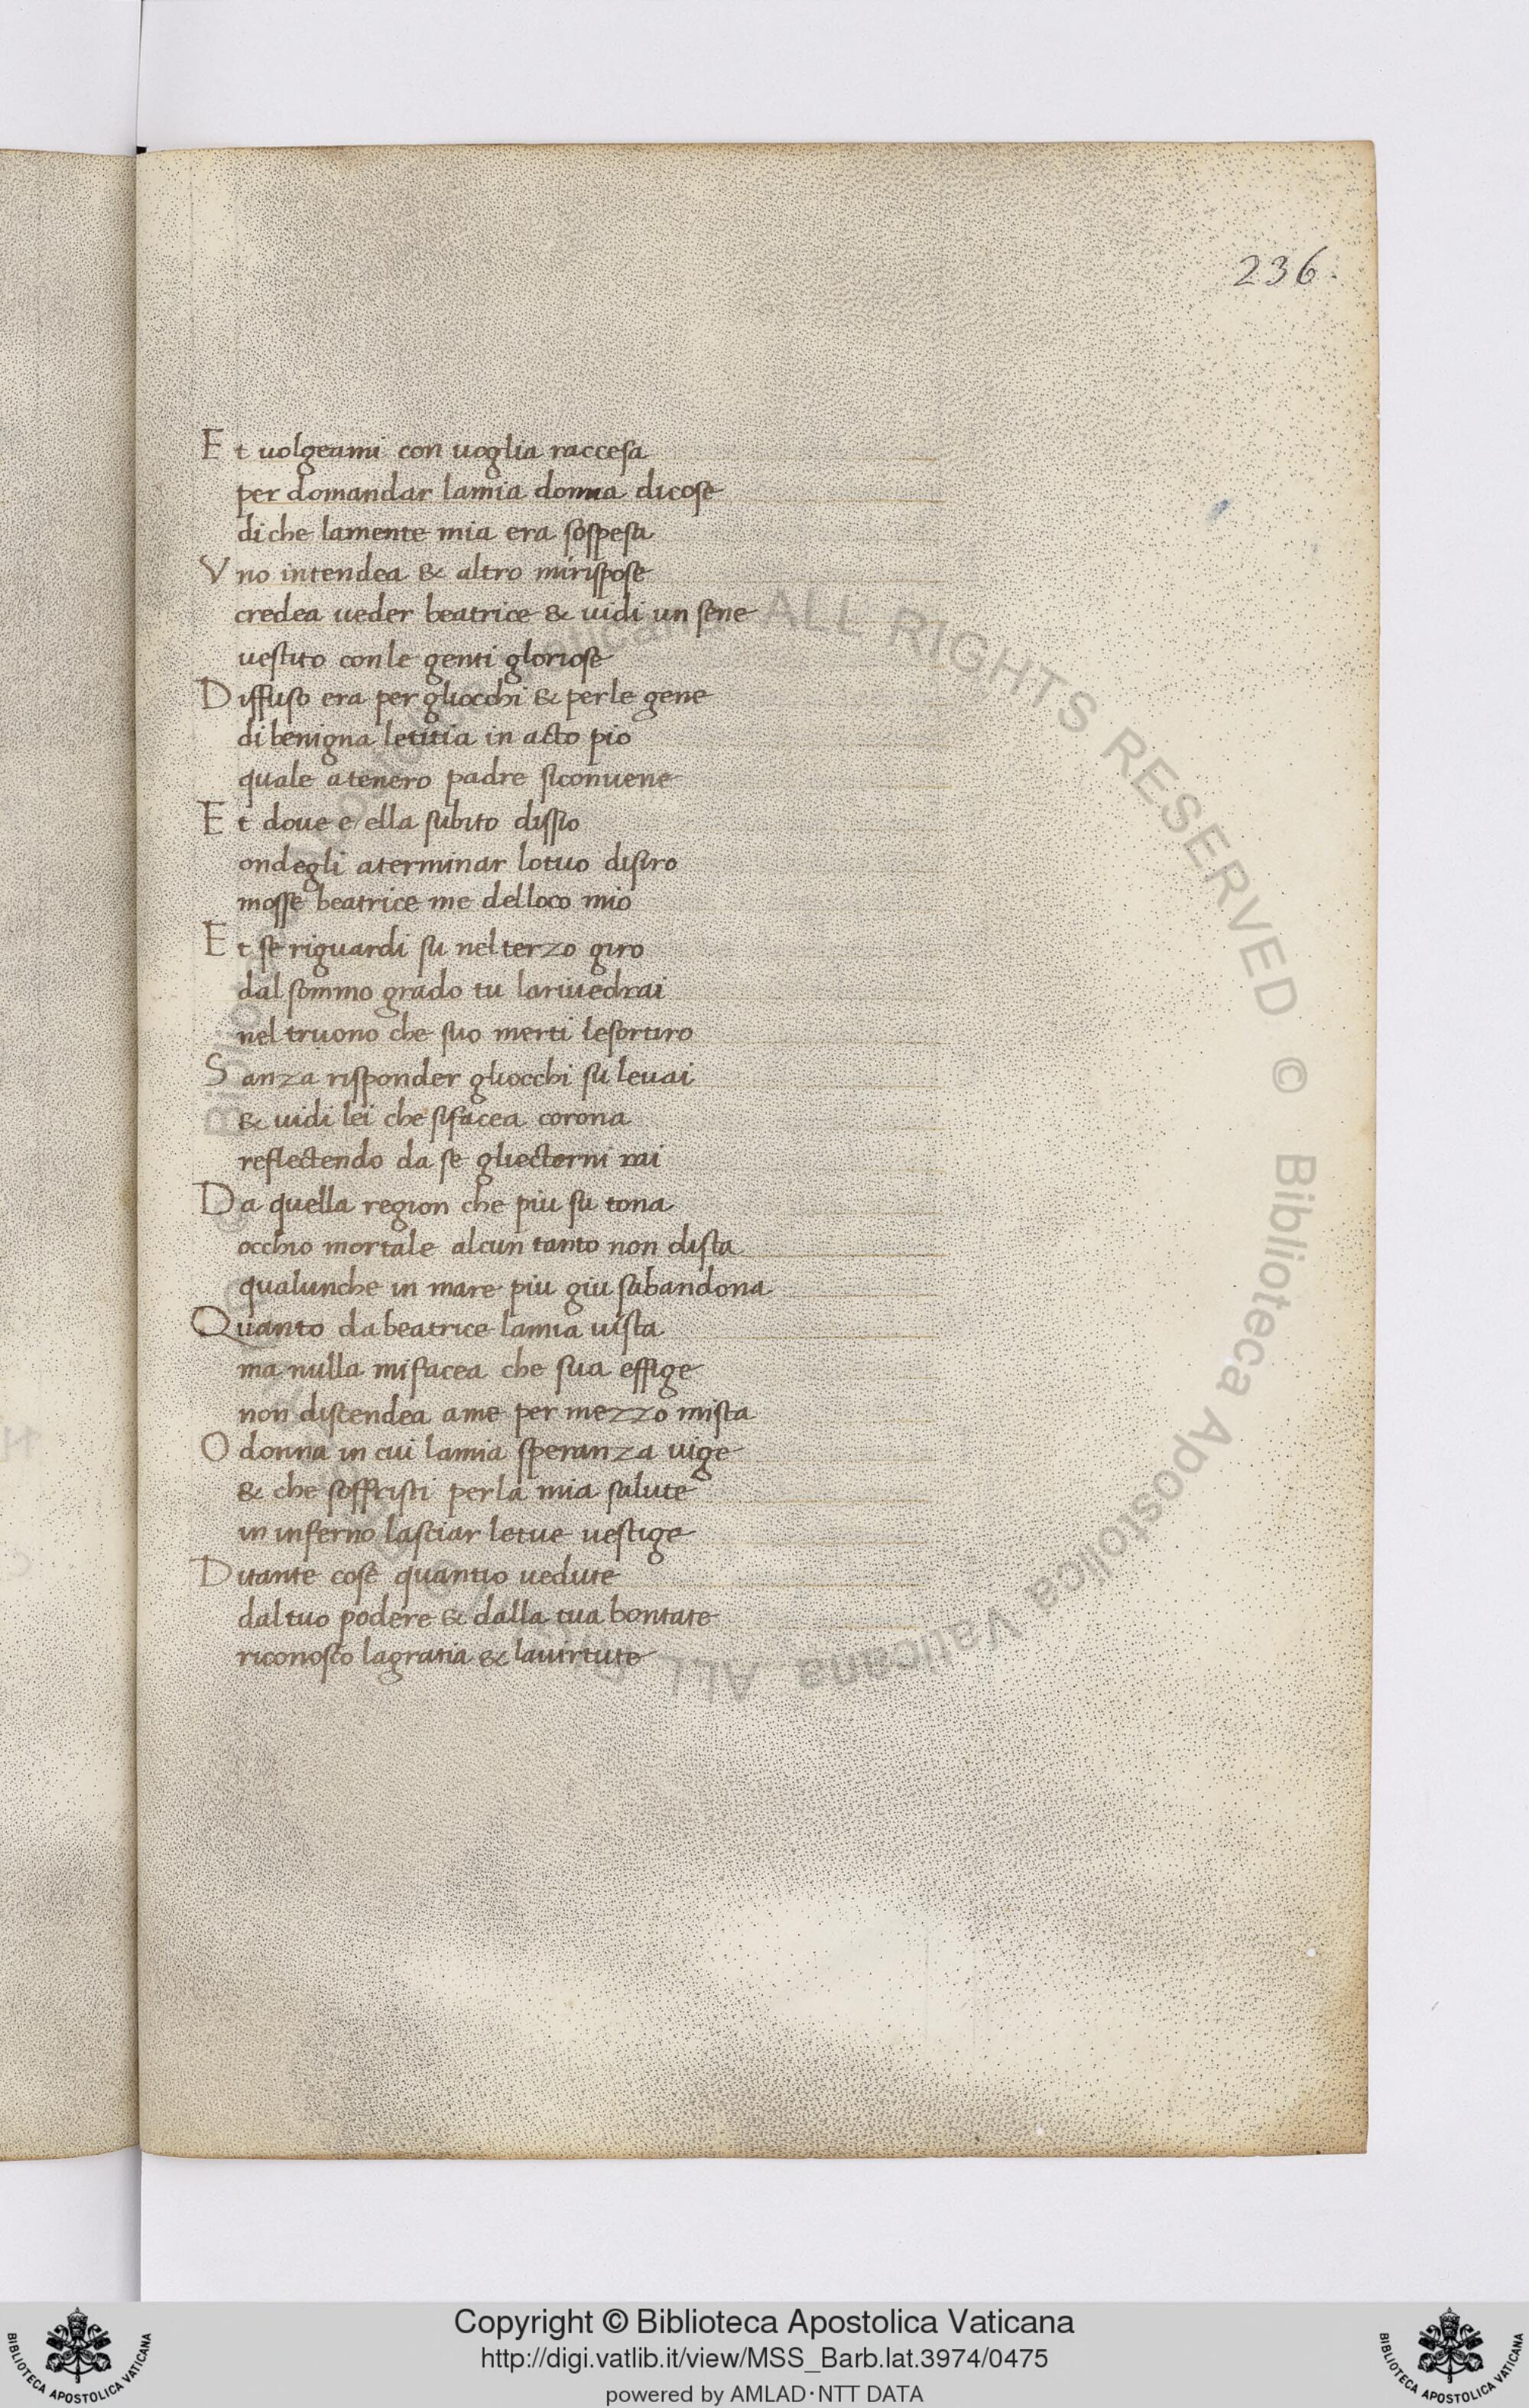 236
Et uolgeami con uoglia raccesa
per domandar lamia donna dicose
di che lamente mia era sospesa
Vno intendea & altro mirispose
credea ueder beatrice & uidi un sene
uestito conle genti gloriose
Diffuso era per gliocchi & perle gene
di benigna letitia in acto pio
quale atenero padre siconuene
Et doue e ella subito dissio
ondegli aterminar lotuo disiro
mosse beatrice me delloco mio
Et se riguardi su nelterzo giro
dal sommo grado tu lariuedrai
nel truono che suo merti lesortiro
Sanza risponder gliocchi su leuai
& uidi lei che sifacea corona
reflectendo da se gliecterni rai
Da quella region che piu su tona
occhio mortale alcun tanto non dista
qualunche in mare piu giu sabandona
Quanto da beatrice lamia uista
ma nulla mifacea che sua effige
non discendea ame per mezzo mista
O donna in cui lamia speranza uige
& che soffristi perla mia salute
in inferno lasciar letue uestige
Ditante cose quantio uedute
daltuo podere & dalla tua bontate
riconosco lagratia & lauirtute
Biblioteca Apostolica Vaticana ALL RIGHTS RESERVED ©
Copyright © Biblioteca Apostolica Vaticana
http://digi.vatlib.it/view/MSS_Barb.lat.3974/0475
powered by AMLAD·NTT DATA
BIBLIOTECA APOSTOLICA VATICANA
BIBLIOTECA APOSTOLICA VATICANA